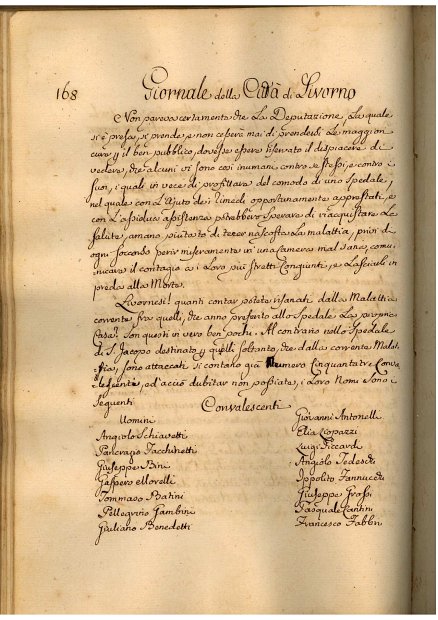 168 Giornale della Città di Livorno
Non pareva certamente che La Deputazione, La quale
si è presa, si prende, e non cesserà mai di prendersi Le maggiori
cure p il ben pubblico, dovesse essere riservato il dispiacere di
vedere, che alcuni si sono così inumani contro se stessi, e contro i
suoi, i quali in vece di profittare del comodo di uno Spedale,
nel quale con L'Ajuto de' rimedi opportunamente apprestati, e
con L'assidua assistenza potrebbero sperare di riacquistare La
salute, amano piutosto di tener nascosta La malattia, privi di
ogni soccorso perir miseramente in una Camera mal sana, comu-
nicare il contagio a i Loro più stretti Congiunti, e Lasciarli in
preda alla Morte.
Livornesi! quanti contar potete risanati dalla Malattia
corrente fra quelli, che anno preferito allo Spedale La propria
Casa? Son questi in vero ben pochi. Al contrario nello Spedale
di S. Jacopo destinato p quelli soltanto, che dalla corrente Malat-
tia, sono attaccati si contano già Numero Cinquantatre Conva-
lescenti, ed acciò dubitar non possiate, i Loro Nomi sono i
seguenti
Convalescenti
Uomini
Angiolo Schiavetti
Pancrazio Tacchinetti
Giuseppe Bini
Gaspero Morelli
Tommaso Patini
Pellegrino Gambini
Giuliano Benedetti
Giovanni Antonelli
Elia Lopazzi
Luigi Siccardi
Angiolo Tedeschi
Ippolito Fannucchi
Giuseppe Grassi
Pasquale Cantini
Francesco Fabbri